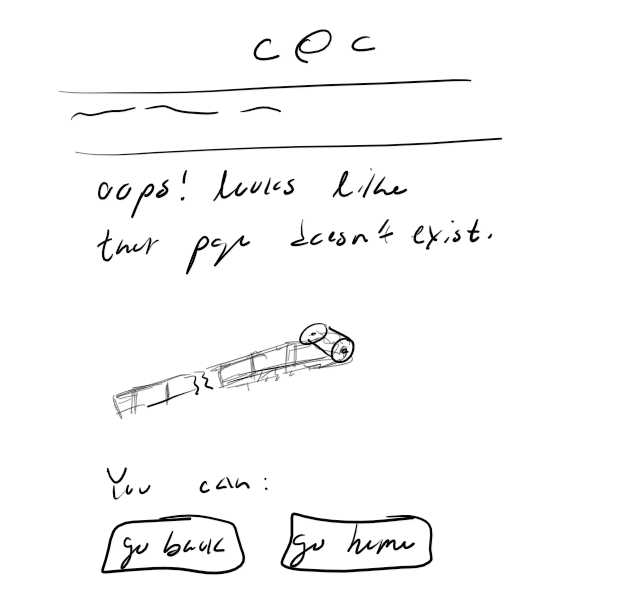 COC
oops! looks like
that page doesn't exist.
You can:
go back
go home